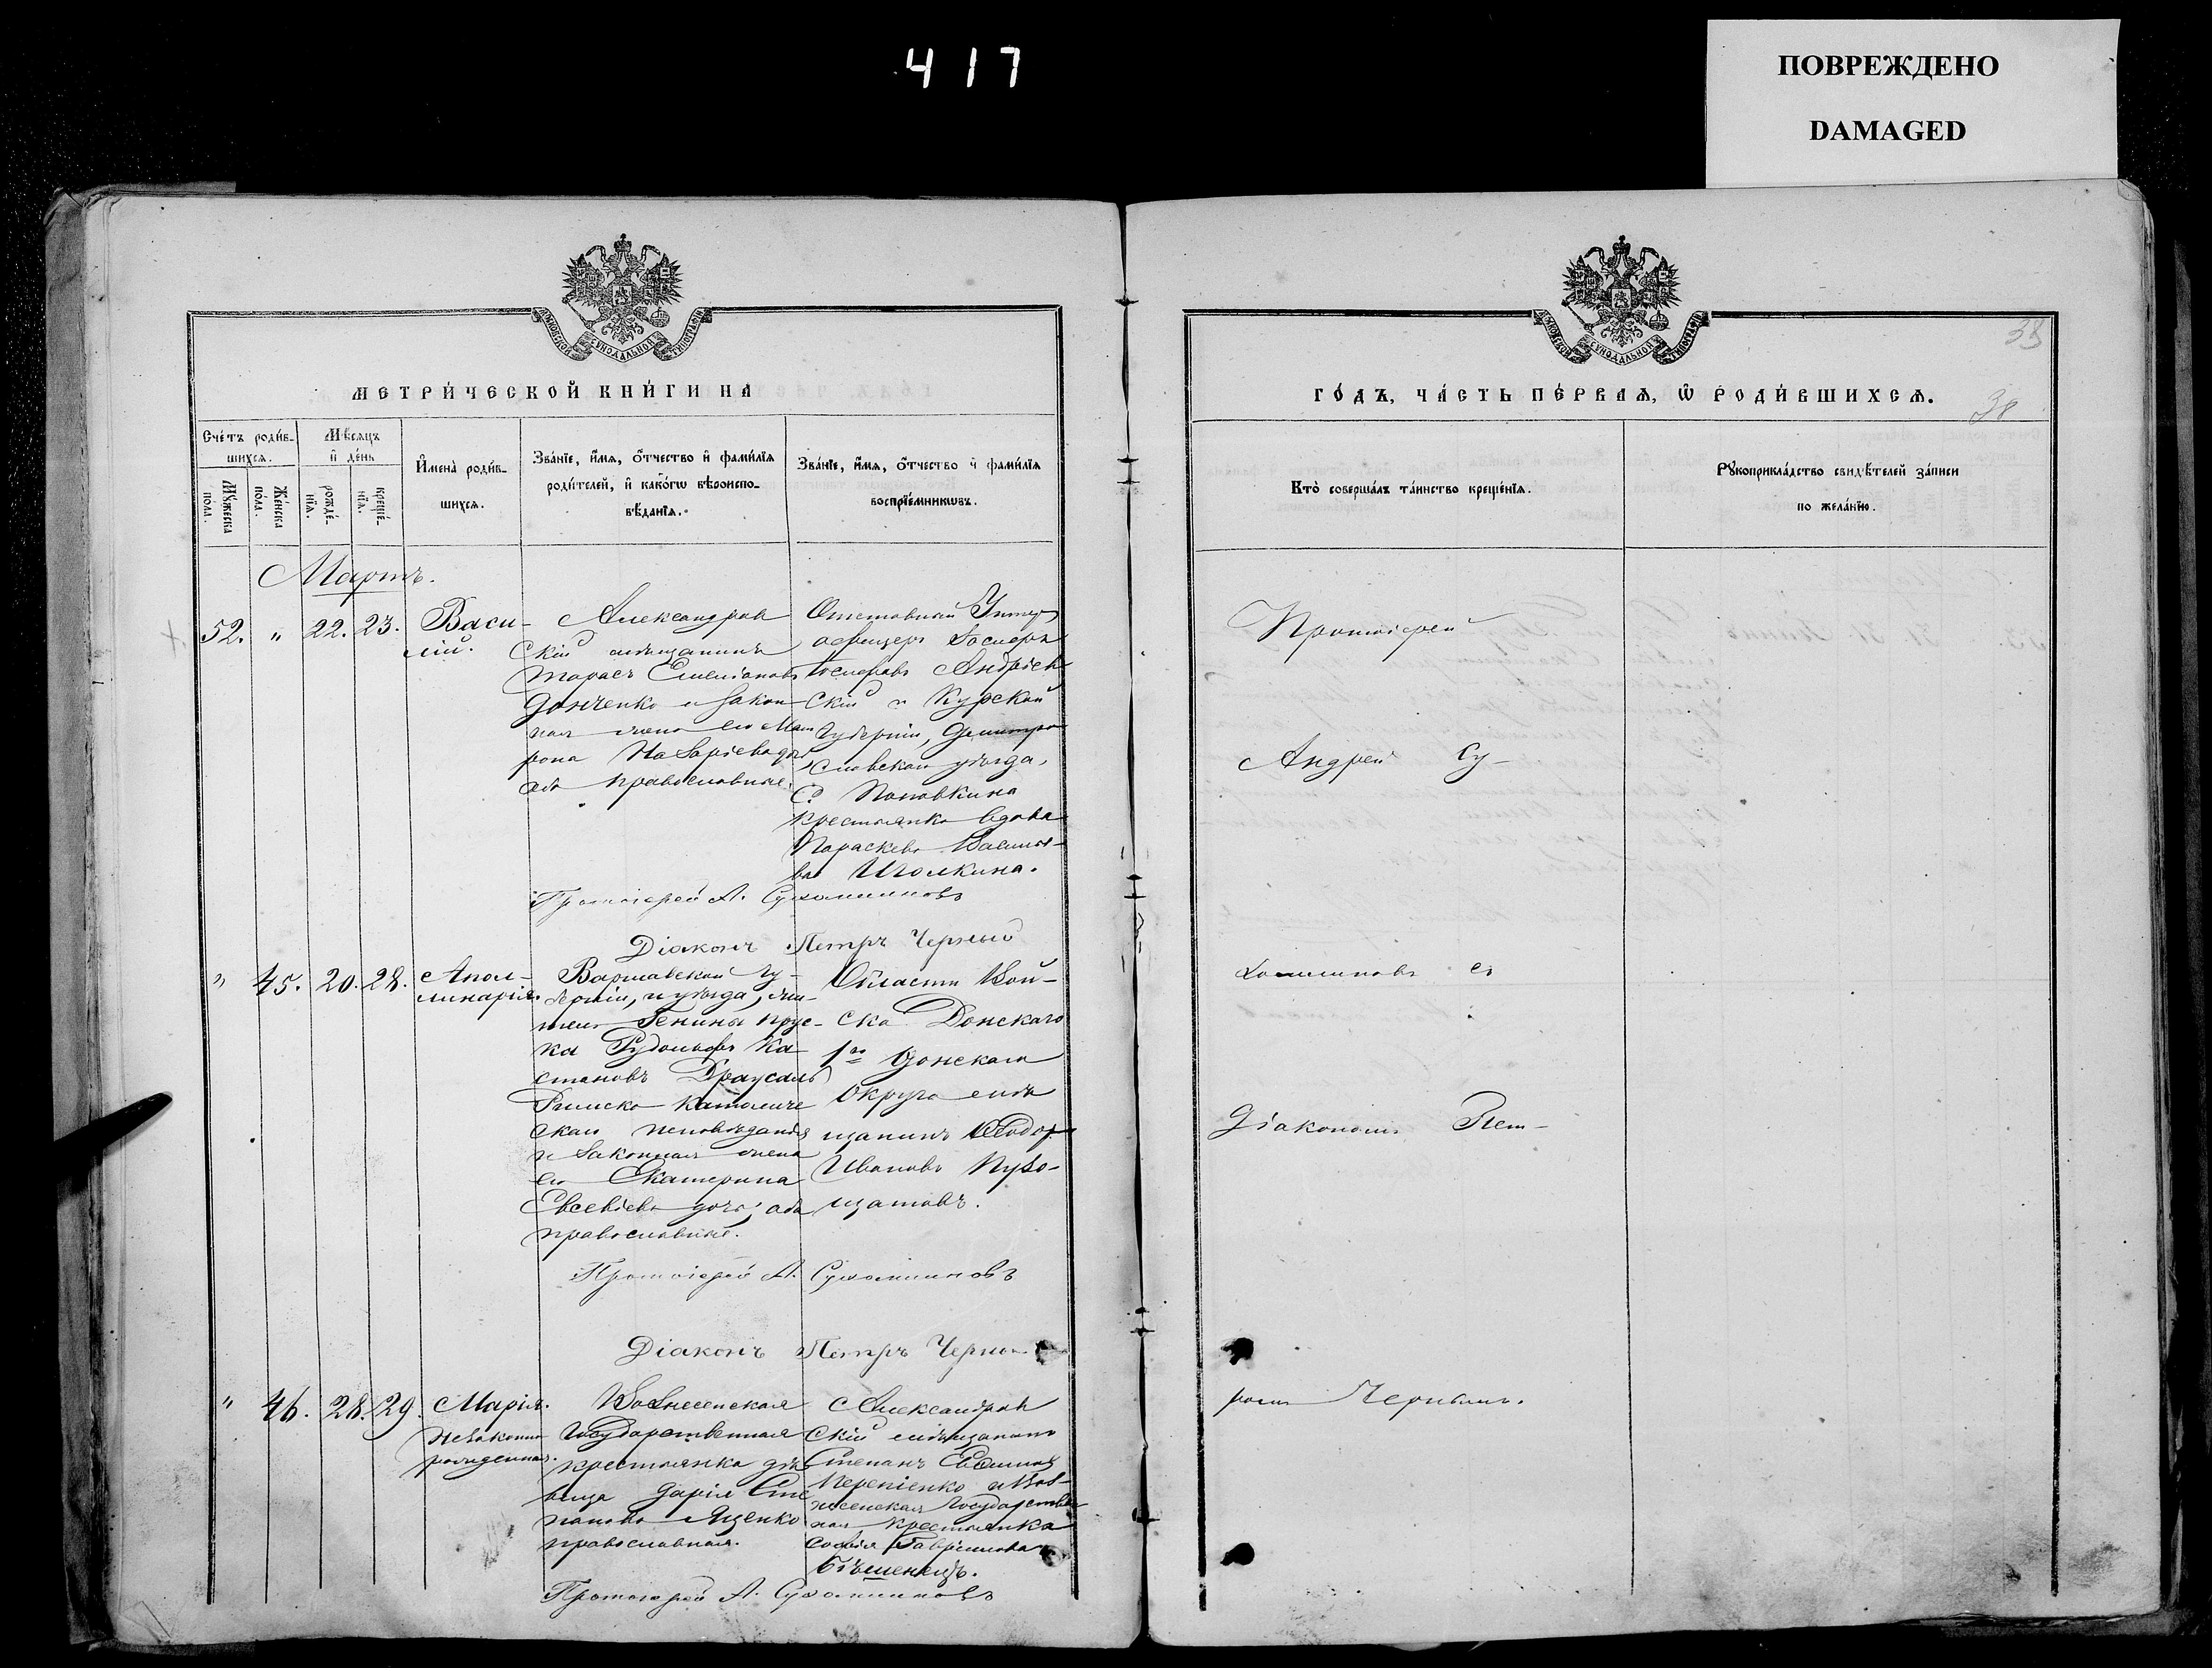 417
ПОВРЕЖДЕНО
DAMAGED
МЕТРИ́ЧЕСКОЙ КНИ́ГИ НА
Сче́тъ роди́в-
шихсѧ.
Мѣ́сѧцъ
и҆ де́нь
Мꙋ́жеска
по́ла.
Же́нска
по́ла.
рожде́-
нїѧ.
креще́-
нїѧ.
И҆мена̀ роди́в-
шихсѧ.
Зва́нїе, и҆́мѧ, ѻ҆́тчество и҆ фами́лїѧ
роди́телей, и҆ како́гѡ вѣроиспо-
вѣ́данїѧ.
Зва́нїе, и҆́мѧ, ѻ҆́тчество и҆ фами́лїѧ
воспрїе́мникѡвъ.
Мартъ.
52. " 22. 23.
Васи-
лій.
Александров
скій мѣщанинъ
Тарасъ Емеліановъ
Донченко и закон
ная жена его Мат
рона Назаріева
оба православные.
Отставной Унтер
офицеръ Іосифъ
Іосифовъ Андріев
скій и Курской
губерніи, Дмитро
словскаго уѣзда,
С. Поповкина
крестьянка вдова
Параскева Василье-
ва Иголкина.
Протоіерей А. Сухомлиновъ
Діаконъ Петръ Черный
" 45. 20. 28.
Апол-
линарія.
Варшавской гу-
берніи, и уѣзда, жи-
тель Гмины
ка Рудольфъ Ка
етановъ
Римско Католиче
скаго исповѣданія
и законная жена
его Екатерина
Евсевіева дочь, оба
православные.
Области Вой-
ска Донскаго
1го Донскаго
Округа мѣ
щанинъ Ѳеодоръ
Ивановъ Пузо-
щатовъ.
Протоіерей А. Сухомлиновъ
Діаконъ Петръ Черны
" 46. 28. 29.
Марія.
незаконно
рожденная.
Вознесенская
Государственная
крестьянка дѣ
вица Дарія Сте
панова Яценко
православная.
Александров
скій мѣщанинъ
Степанъ Ефимов
и Воз-
несенская Государствен
ная крестьянка
Софія Гавріилова
Протоіерей А. Сухомлиновъ
ГО́ДЪ, ЧА́СТЬ ПЕ́РВАѦ, Ѡ҆ РОДИ́ВШИХСѦ.
38
Кто̀ соверша́лъ та́инство креще́нїѧ.
Рꙋкоприкла́дство свидѣ́телей за́писи
по жела́нїю.
Протоіерей
Андрей Су-
хомлиновъ съ
Діакономъ Пет-
ромъ Чернымъ.